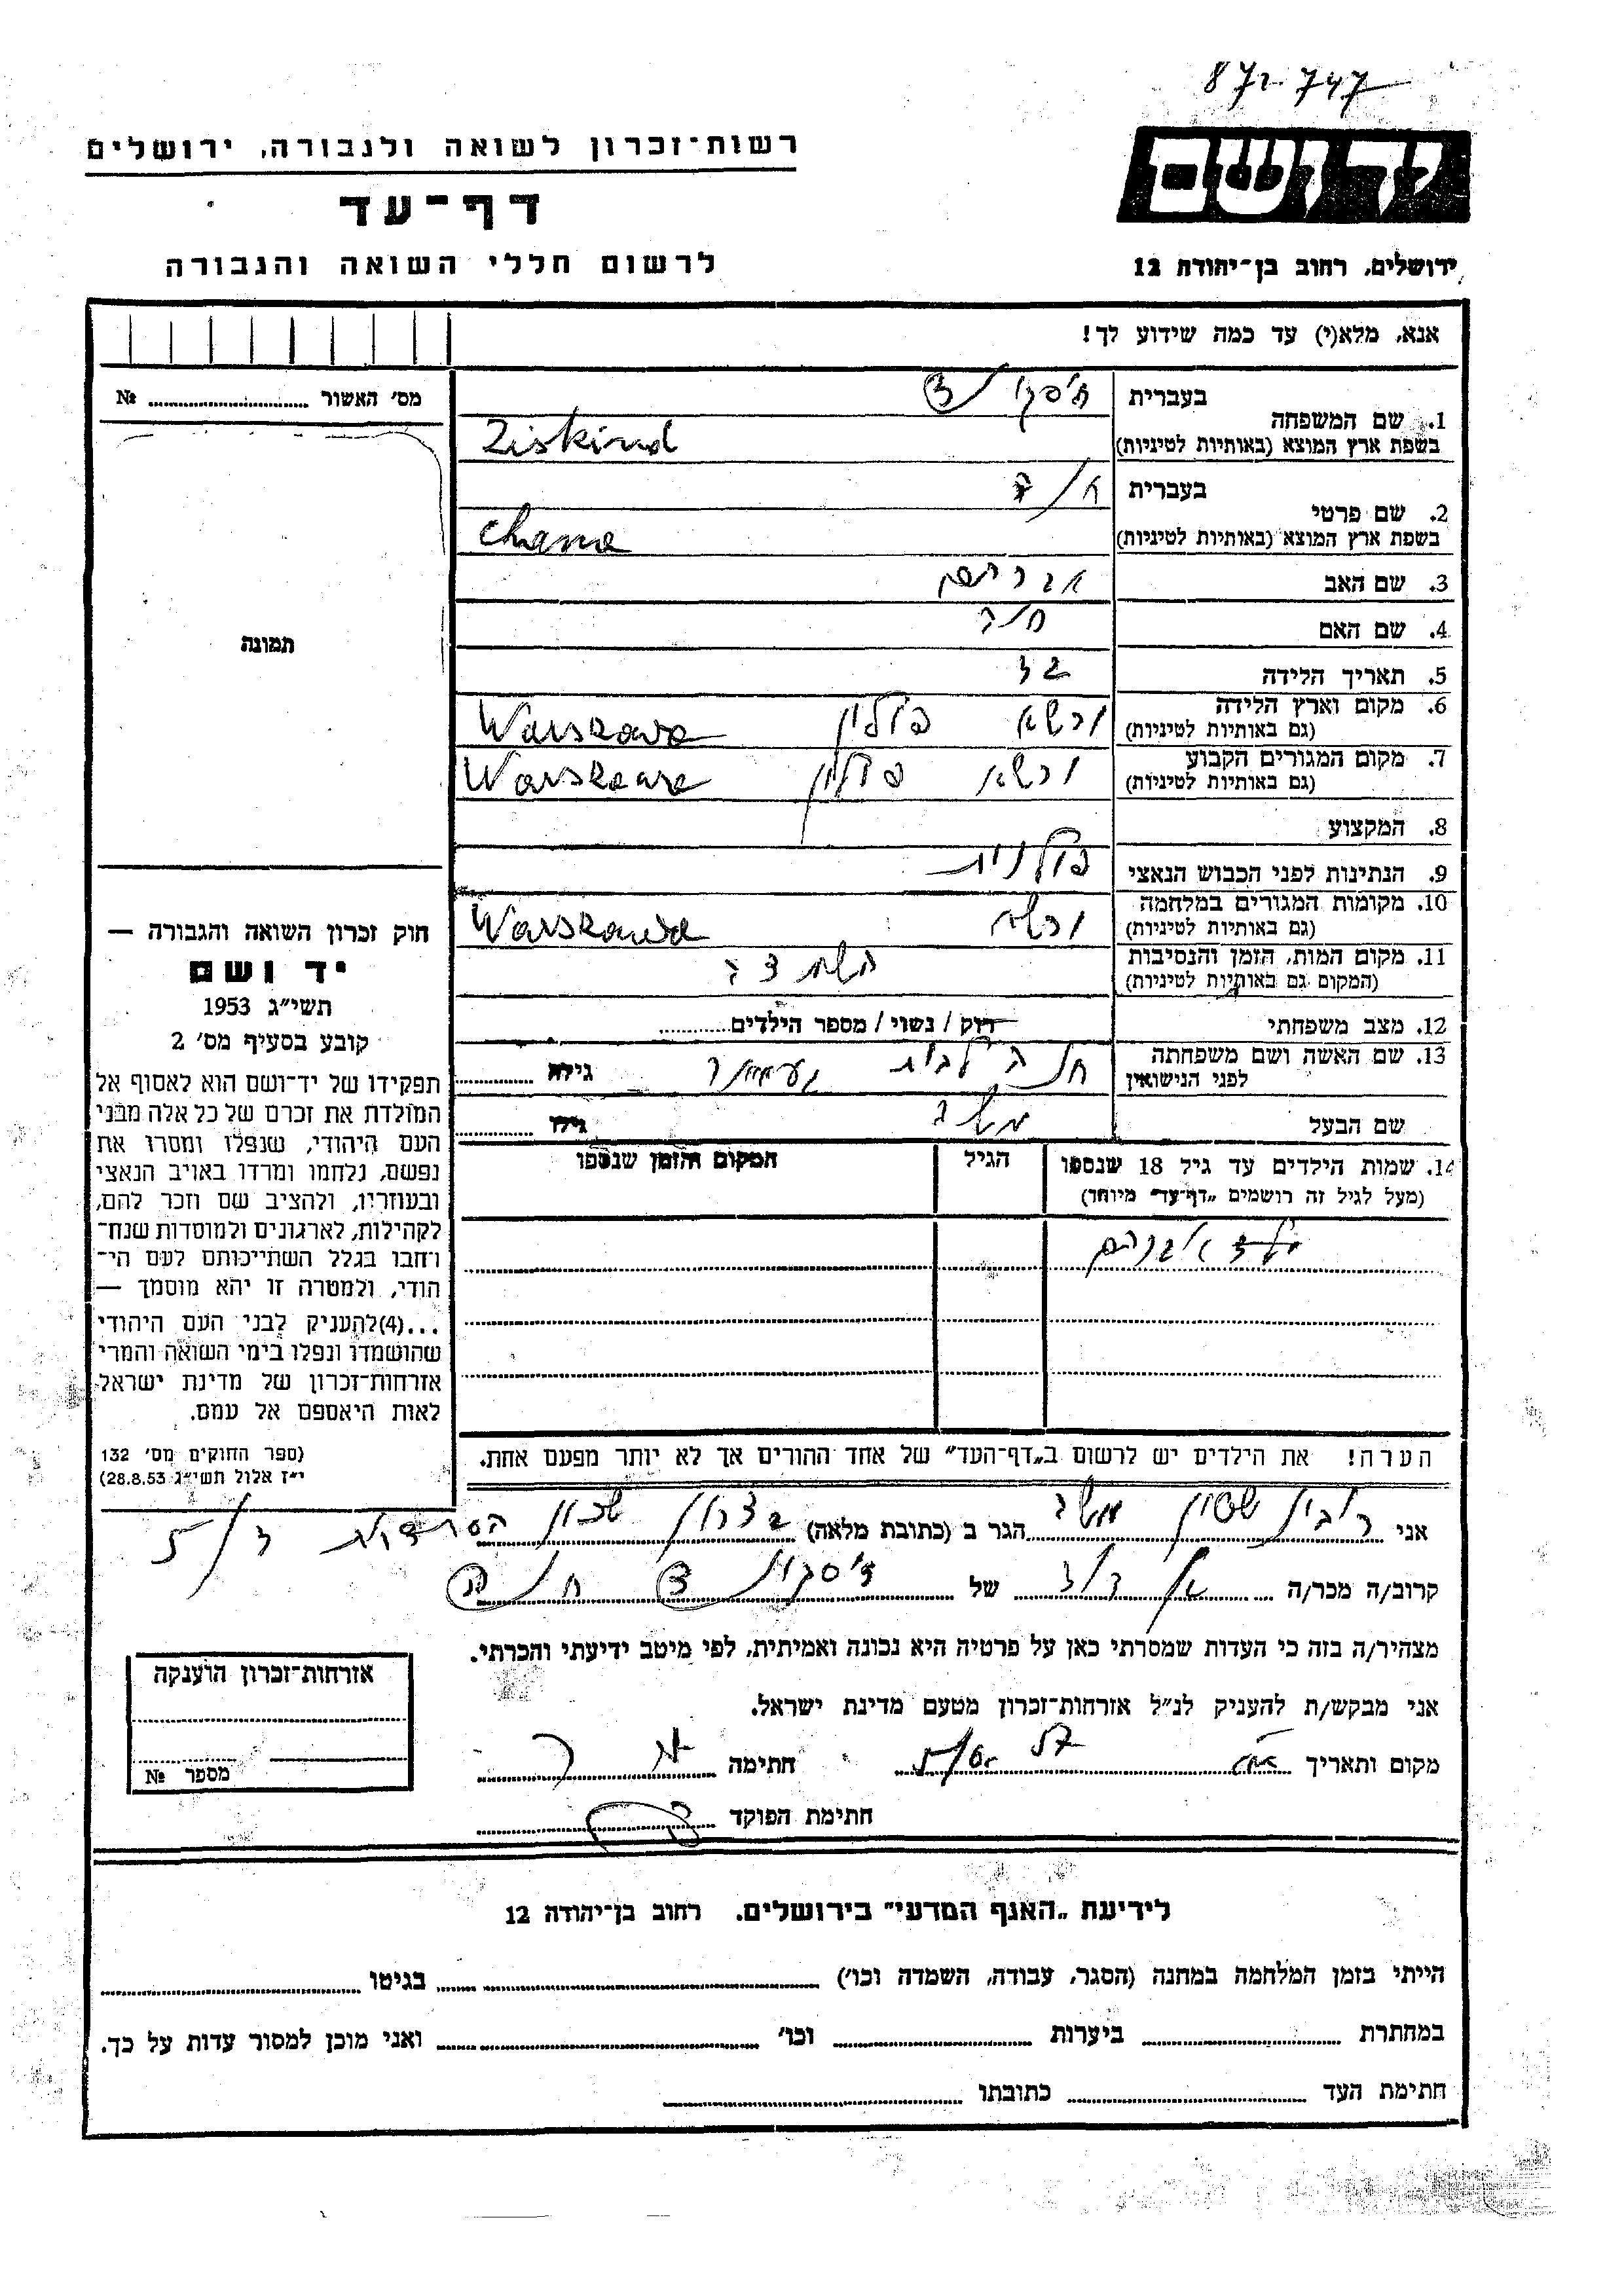 רשות־זכרון לשואה ולגבורה, ירושלים
דף־עד
לרשום חללי השואה והגבורה
ידושם
ירושלים, רחוב בן־יהודה 12
אנא, מלא(י) עד כמה שידוע לך!
מס׳ האשור №
1. שם המשפחה
בעברית
בשפת ארץ המוצא (באותיות לטיניות) Ziskind
2. שם פרטי
בעברית
בשפת ארץ המוצא (באותיות לטיניות) Chana
3. שם האב אברהם
4. שם האם
5. תאריך הלידה
6. מקום וארץ הלידה ורשא פולין Warszawa
(גם באותיות לטיניות)
7. מקום המגורים הקבוע ורשא פולין Warszawa
(גם באותיות לטיניות)
8. המקצוע
9. הנתינות לפני הכבוש הנאצי פולנית
10. מקומות המגורים במלחמה ורשא Warszawa
(גם באותיות לטיניות)
11. מקום המות, הזמן והנסיבות
(המקום גם באותיות לטיניות)
12. מצב משפחתי רוק / נשוי / מספר הילדים
13. שם האשה ושם משפחתה
לפני הנישואין גילה
שם הבעל משה גילו
14. שמות הילדים עד גיל 18 שנספו
(מעל לגיל זה רושמים „דף־עד״ מיוחד)
הגיל
המקום והזמן שנספו
הערה! את הילדים יש לרשום ב„דף־העד״ של אחד ההורים אך לא יותר מפעם אחת.
תמונה
חוק זכרון השואה והגבורה —
יד ושם
תשי״ג 1953
קובע בסעיף מס׳ 2
תפקידו של יד־ושם הוא לאסוף אל
המולדת את זכרם של כל אלה מבני
העם היהודי, שנפלו ומסרו את
נפשם, נלחמו ומרדו באויב הנאצי
ובעוזריו, ולהציב שם וזכר להם,
לקהילות, לארגונים ולמוסדות שנח־
רחבו בגלל השתייכותם לעם הי־
הודי, ולמטרה זו יהא מוסמך —
...(4)להעניק לבני העם היהודי
שהושמדו ונפלו בימי השואה והמרי
אזרחות־זכרון של מדינת ישראל
לאות היאספם אל עמם.
(ספר החוקים מס׳ 132
י״ז אלול תשי״ג 28.8.53)
אני משה הגר ב (כתובת מלאה)
קרוב/ה מכר/ה של חנה
מצהיר/ה בזה כי העדות שמסרתי כאן על פרטיה היא נכונה ואמיתית, לפי מיטב ידיעתי והכרתי.
אני מבקש/ת להעניק לנ״ל אזרחות־זכרון מטעם מדינת ישראל.
מקום ותאריך חתימה
חתימת הפוקד
אזרחות־זכרון הוענקה
מספר №
לידיעת „האגף המדעי״ בירושלים. רחוב בן־יהודה 12
הייתי בזמן המלחמה במחנה (הסגר, עבודה, השמדה וכו׳) בגיטו
במחתרת ביערות וכו׳ ואני מוכן למסור עדות על כך.
חתימת העד כתובתו